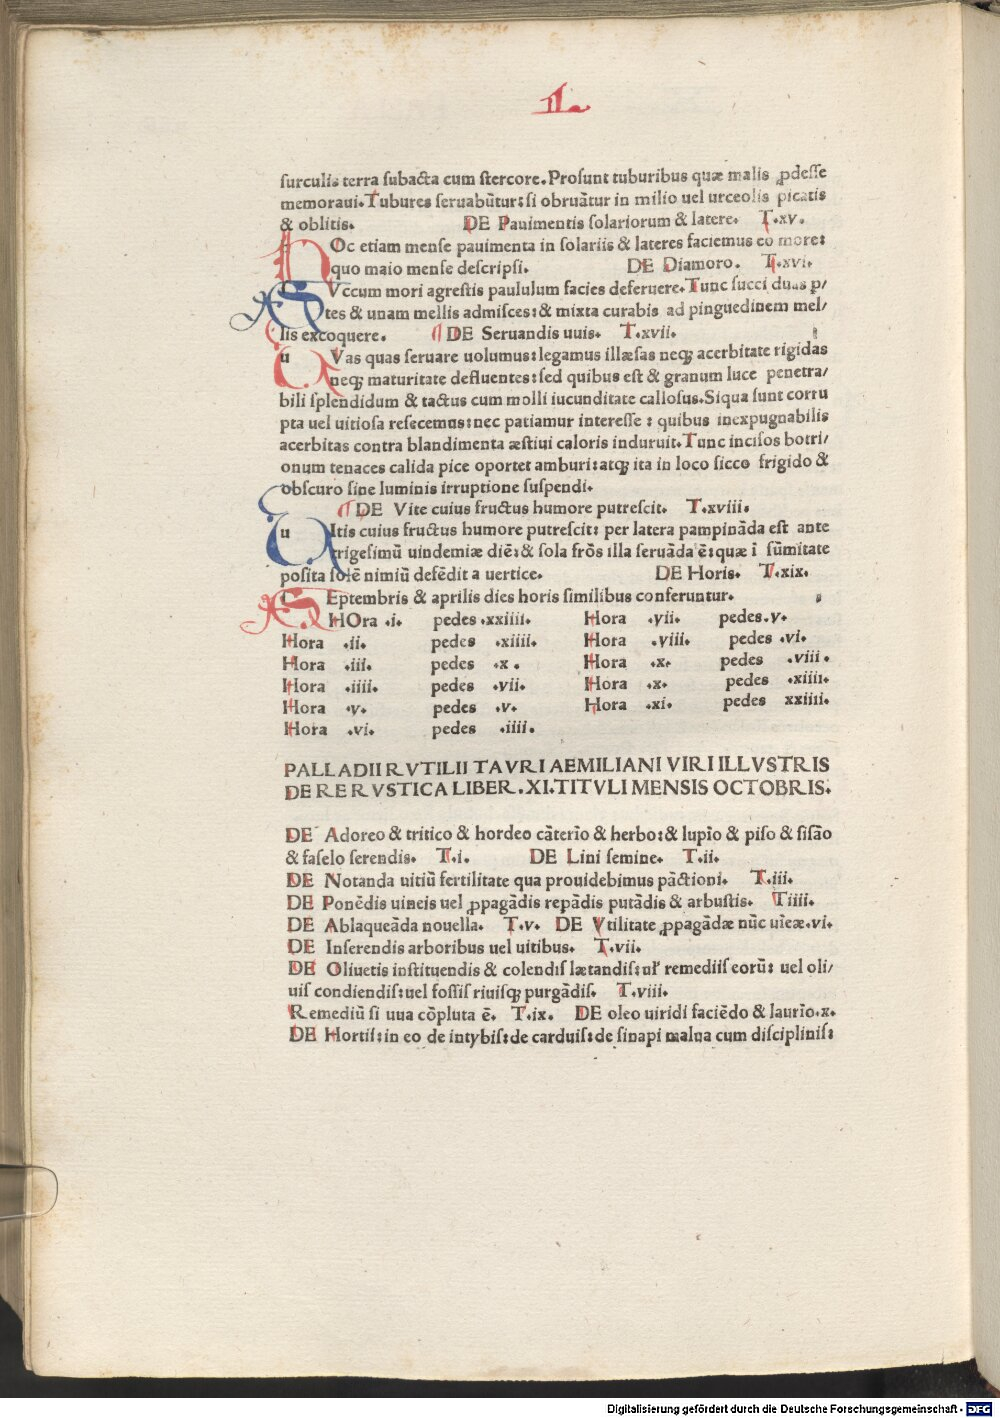 II.
surculis terra subacta cum stercore. Prosunt tuburibus quæ malis ꝓdesse
memoraui. Tubures seruabũtur: si obruãtur in milio uel urceolis picatis
& oblitis. DE Pauimentis solariorum & latere. T.xv.
HOc etiam mense pauimenta in solariis & lateres faciemus eo more:
quo maio mense descripsi. DE Diamoro. T.xvi.
SVccum mori agrestis paululum facies deferuere. Tunc succi duas p/
tes & unam mellis admisces: & mixta curabis ad pinguedinem mel/
lis excoquere. DE Seruandis uuis. T.xvii.
u Vas quas seruare uolumus: legamus illæsas neqʒ acerbitate rigidas
neqʒ maturitate defluentes: sed quibus est & granum luce penetra/
bili splendidum & tactus cum molli iucunditate callosus. Siqua sunt corru
pta uel uitiosa resecemus: nec patiamur interesse: quibus inexpugnabilis
acerbitas contra blandimenta æstiui caloris induruit. Tunc incisos botri/
onum tenaces calida pice oportet amburi: atqʒ ita in loco sicco frigido &
obscuro sine luminis irruptione suspendi.
DE Vite cuius fructus humore putrescit. T.xviii.
u Itis cuius fructus humore putrescit: per latera pampinãda est ante
trigesimũ uindemiæ diẽ: & sola frõs illa seruãda ẽ: quæ ĩ sũmitate
posita solẽ nimiũ defẽdit a uertice. DE Horis. T.xix.
SEptembris & aprilis dies horis similibus conferuntur.
HOra .i. pedes .xxiiii. Hora .vii. pedes .v.
Hora .ii. pedes .xiiii. Hora .viii. pedes .vi.
Hora .iii. pedes .x. Hora .x. pedes .viii.
Hora .iiii. pedes .vii. Hora .x. pedes .xiiii.
Hora .v. pedes .v. Hora .xi. pedes xxiiii.
Hora .vi. pedes .iiii.
PALLADII RVTILII TAVRI AEMILIANI VIRI ILLVSTRIS
DE RE RVSTICA LIBER .XI. TITVLI MENSIS OCTOBRIS.
DE Adoreo & tritico & hordeo cãterĩo & herbo: & lupĩo & piso & sisão
& faselo serendis. T.i. DE Lini semine. T.ii.
DE Notanda uitiũ fertilitate qua prouidebimus pãctioni. T.iii.
DE Ponẽdis uineis uel ꝓpagãdis repãdis putãdis & arbustis. Tiiii.
DE Ablaqueãda nouella. T.v. DE Vtilitate ꝓpagãdæ nũc uĩeæ .vi.
DE Inserendis arboribus uel uitibus. T.vii.
DE Oliuetis instituendis & colendis lætandis: uł remediis eorũ: uel oli/
uis condiendis: uel fossis riuisqʒ purgãdis. T.viii.
Remediũ si uua cõpluta ẽ. T.ix. DE oleo uiridi faciẽdo & laurĩo .x.
DE Hortis: in eo de intybis: de carduis: de sinapi malua cum disciplinis:
Digitalisierung gefördert durch die Deutsche Forschungsgemeinschaft - DFG